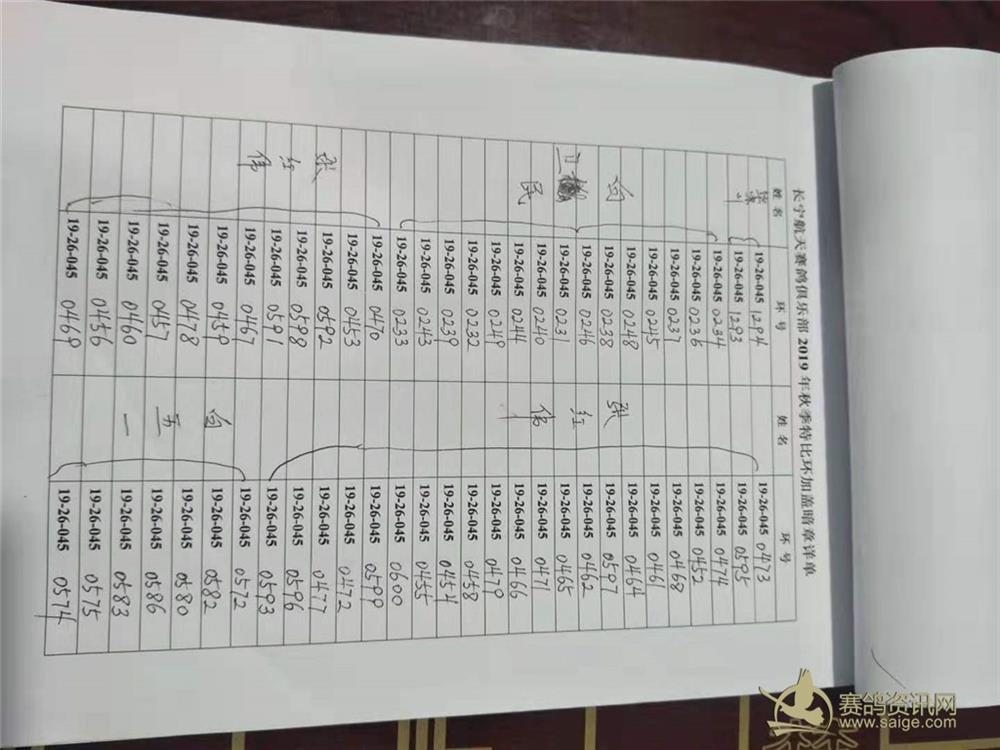 长宁航天赛鸽俱乐部 2019 年秋季特比环加盖暗章详单
姓名 环号 姓名 环号
19-26-045 1294 19-26-045 0473
19-26-045 1293 19-26-045 0595
19-26-045 0234 19-26-045 0474
19-26-045 0236 19-26-045 0452
19-26-045 0237 19-26-045 0468
19-26-045 0245 19-26-045 0461
19-26-045 0248 19-26-045 0464
向 19-26-045 0238 张 19-26-045 0597
19-26-045 0246 红 19-26-045 0462
卫 19-26-045 0231 19-26-045 0465
19-26-045 0240 伟 19-26-045 0471
民 19-26-045 0244 19-26-045 0466
19-26-045 0249 19-26-045 0479
19-26-045 0232 19-26-045 0458
19-26-045 0239 19-26-045 0454
19-26-045 0243 19-26-045 0455
19-26-045 0233 19-26-045 0600
19-26-045 0470 19-26-045 0599
19-26-045 0453 19-26-045 0472
张 19-26-045 0592 19-26-045 0477
红 19-26-045 0598 19-26-045 0596
伟 19-26-045 0591 19-26-045 0593
19-26-045 0467 19-26-045 0572
19-26-045 0459 向 19-26-045 0582
19-26-045 0478 19-26-045 0580
19-26-045 0457 五 19-26-045 0586
19-26-045 0460 一 19-26-045 0583
19-26-045 0456 19-26-045 0575
19-26-045 0469 19-26-045 0574
赛鸽资讯网
www.saige.com